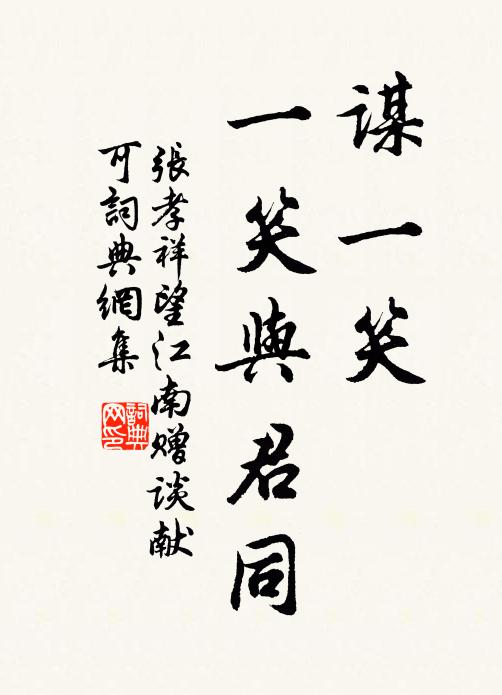 謀一笑
一笑與君同
張孝祥望江南赠谈献
可詞典網集
詞典
网印